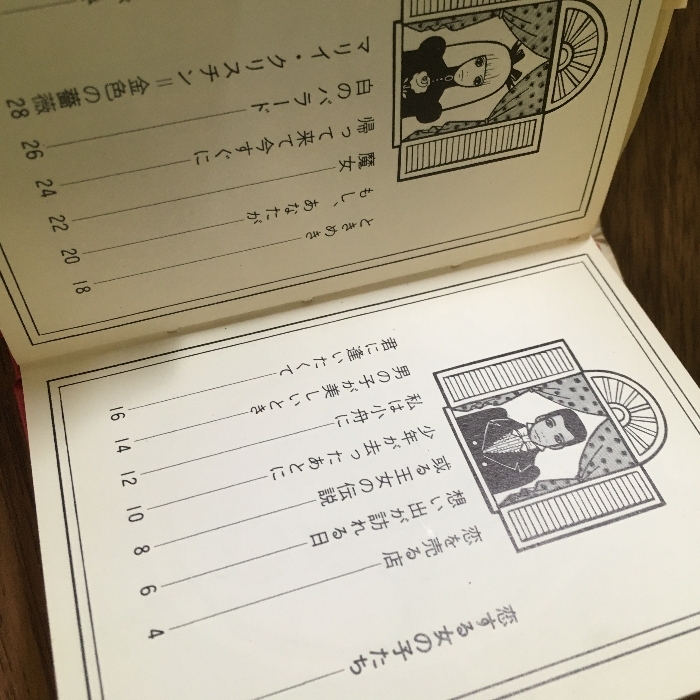 恋する女の子たち
恋を売る店 4
想い出が訪れる日 6
或る王女の伝説 8
少年が去ったあとに 10
私は小舟に 12
男の子が美しいとき 14
君に逢いたくて 16
ときめき 18
もし、あなたが 20
魔女 22
帰って来て今すぐに 24
白のバラード 26
マリイ・クリスチン=金色の薔薇 28